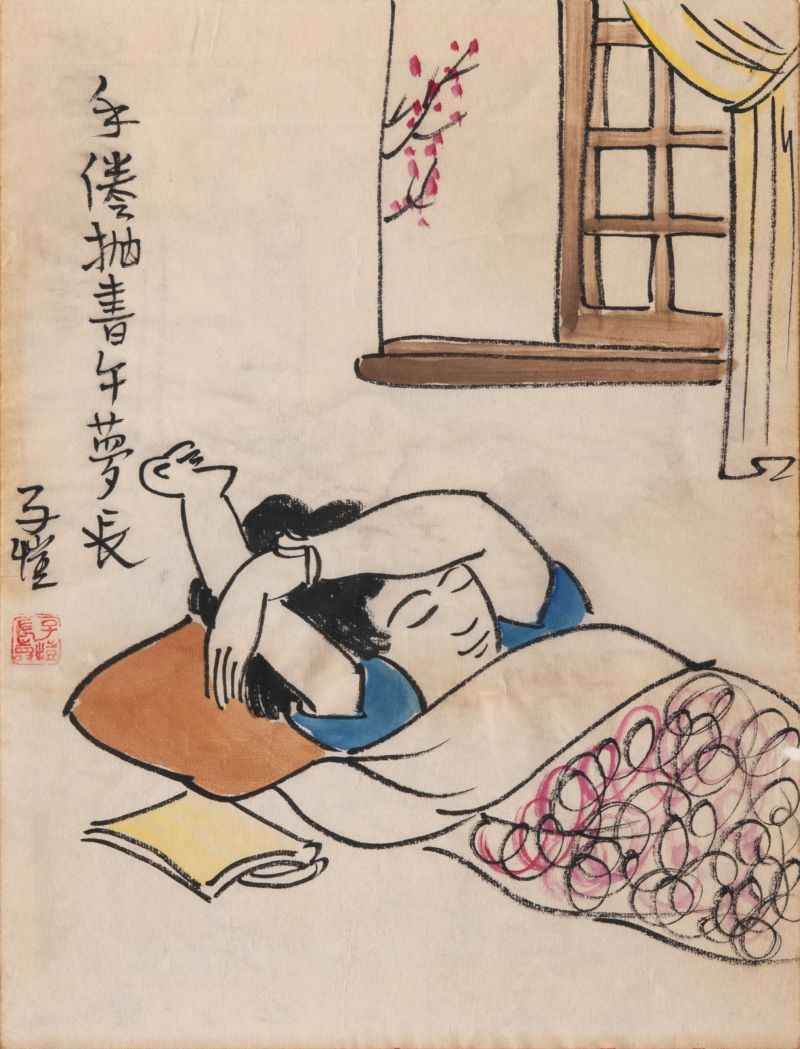 手倦抛書午夢長
子愷
子愷